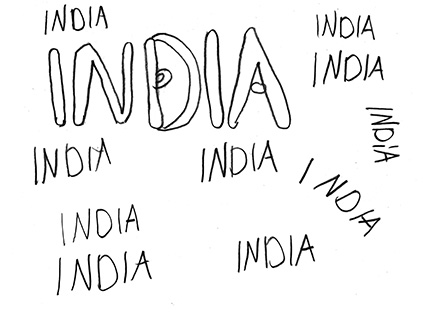 INDIA
INDIA
INDIA
INDIA
INDIA
INDIA
INDIA
INDIA
INDIA
INDIA
INDIA
INDIA